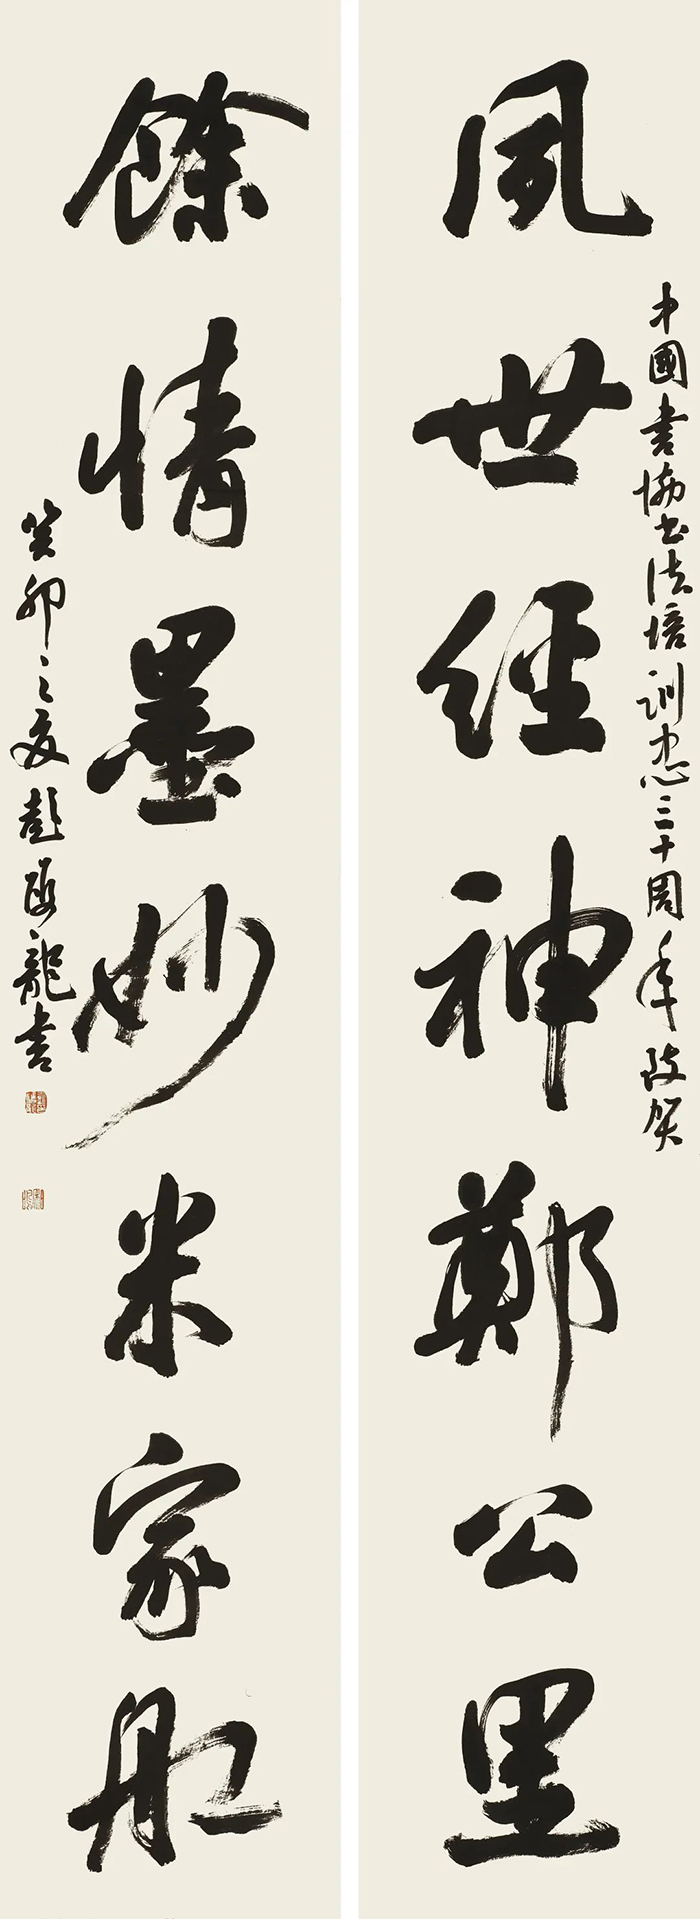 夙世經神鄭公里
中國書協書法培訓中心三十周年致賀
餘情墨妙米家船
癸卯之夏彭雙龍書